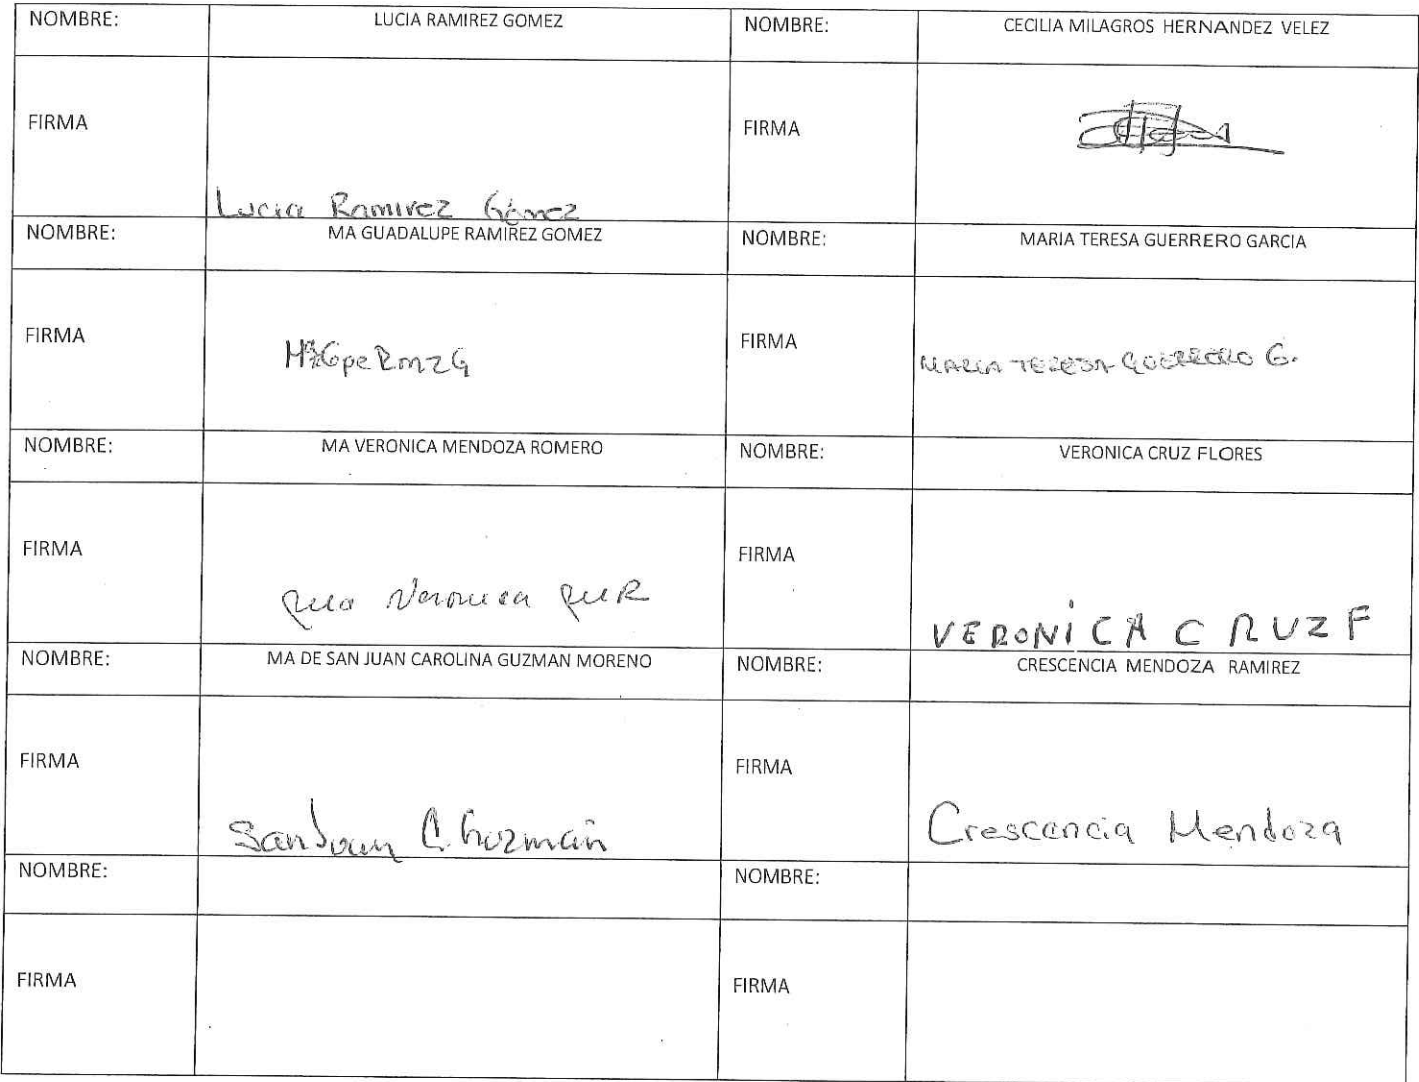 NOMBRE: LUCIA RAMIREZ GOMEZ NOMBRE: CECILIA MILAGROS HERNANDEZ VELEZ
FIRMA FIRMA
Lucia Ramirez Gómez
NOMBRE: MA GUADALUPE RAMIREZ GOMEZ NOMBRE: MARIA TERESA GUERRERO GARCIA
FIRMA FIRMA
Ma Gpe Rmz G MARIA TERESA GUERRERO G.
NOMBRE: MA VERONICA MENDOZA ROMERO NOMBRE: VERONICA CRUZ FLORES
FIRMA FIRMA
Ma Veronica M R VERONiCA CRUZ F
NOMBRE: MA DE SAN JUAN CAROLINA GUZMAN MORENO NOMBRE: CRESCENCIA MENDOZA RAMIREZ
FIRMA FIRMA
San Juan C. Guzmán Crescencia Mendoza
NOMBRE: NOMBRE:
FIRMA FIRMA